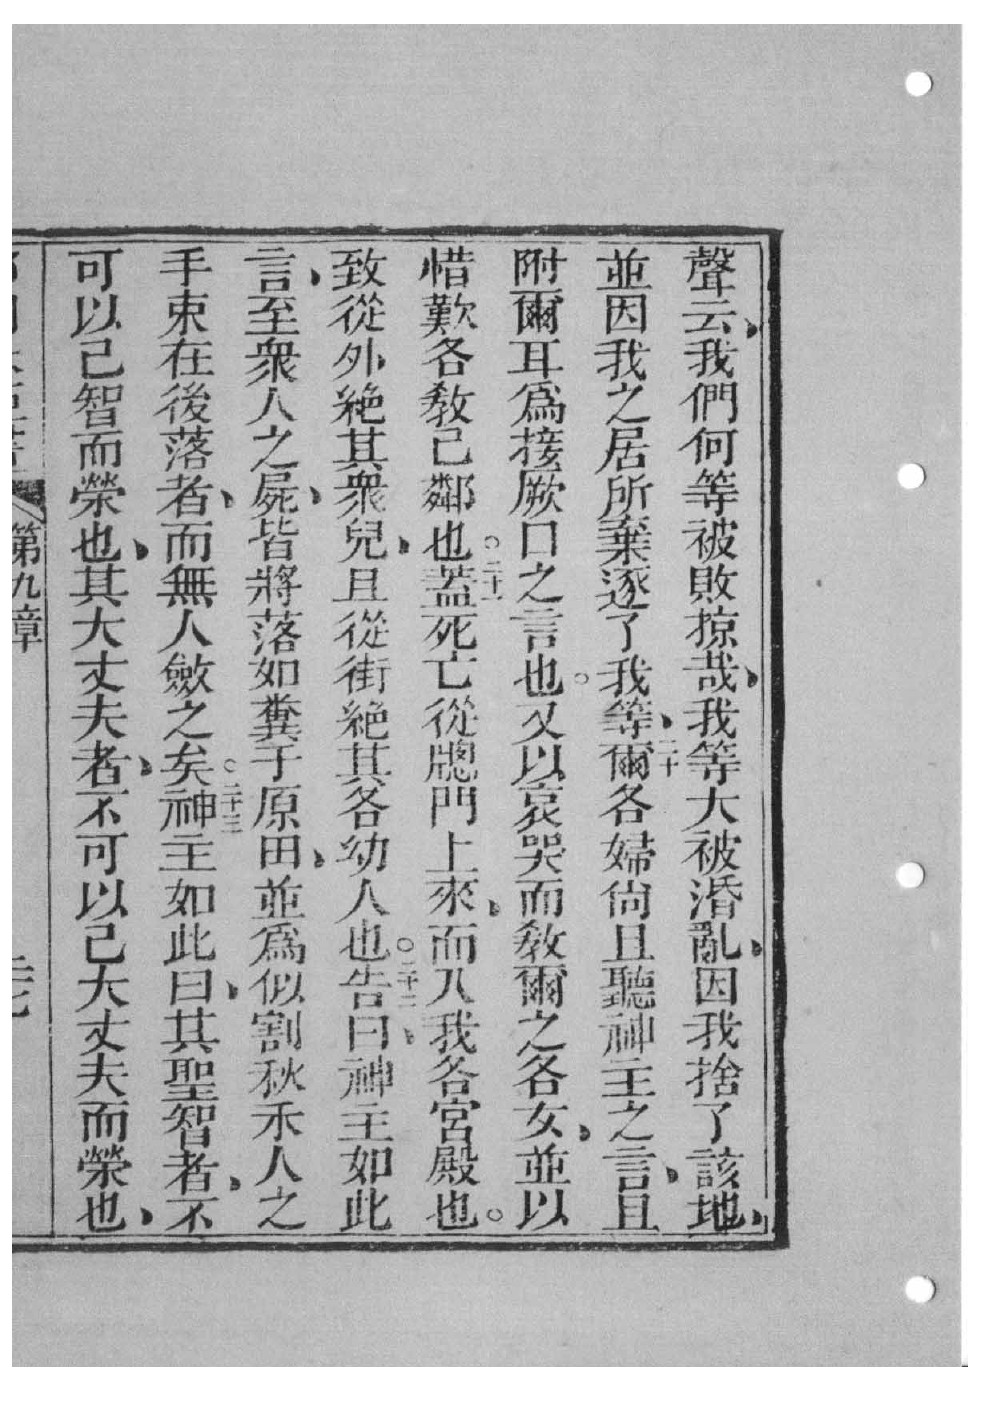 聲云、我們何等被敗掠哉、我等大被湣亂、因我捨了該地、
並因我之居所棄逐了我等、二十爾各婦尙且聽神主之言、且
附爾耳爲接厥口之言也。又以哀哭而敎爾之各女、並以
惜歎各敎己鄰也。二十一蓋死亡從牕門上來、而入我各宮殿也。
致從外絶其衆兒、且從街絶其各幼人也。二十二告曰、神主如此
言、至衆人之屍、皆將落如糞于原田、並爲似割秋禾人之
手束在後落者、而無人斂之矣。二十三神主如此曰、其聖智者、不
可以己智而榮也、其大丈夫者、不可以己大丈夫而榮也、
第九章